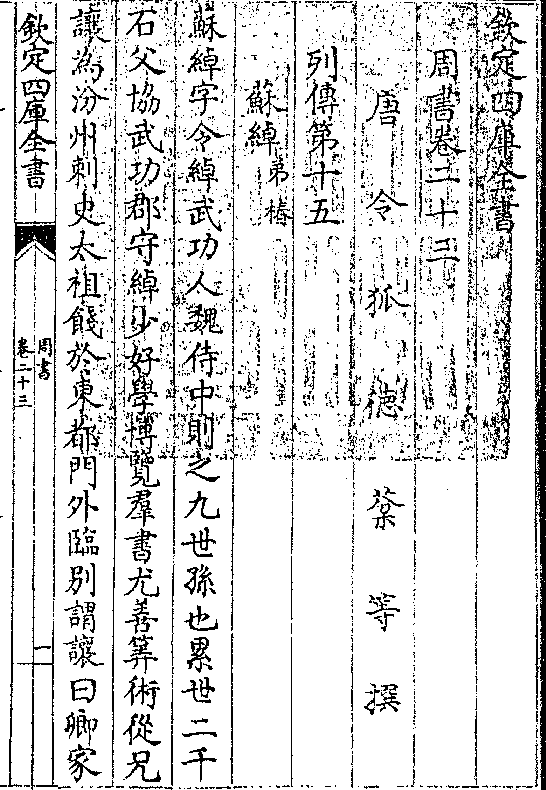 欽定四庫全書
周書卷二十三
唐令狐德棻等撰
列傳第十五
蘇綽弟椿
蘇綽字令綽武功人魏侍中則之九世孫也累世二千
石父協武功郡守綽少好學博覽羣書尤善筭術從兄
讓為汾州刺史太祖餞於東都門外臨別謂讓曰卿家
欽定四庫全書
周書
卷二十三
一